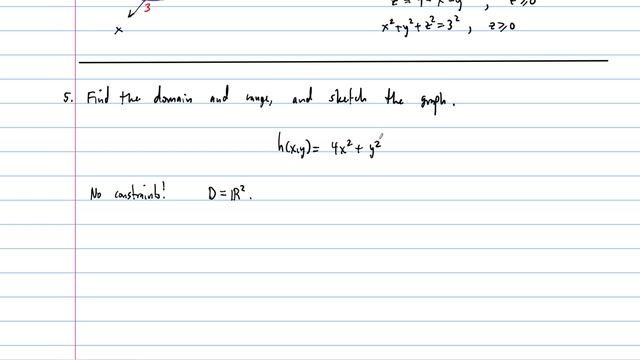 z² = 9 - x² - y² , z ≥ 0
x² + y² + z² = 3² , z ≥ 0
3
x
5. Find the domain and range, and sketch the graph.
h(x,y) = 4x² + y²
No constraints! D = ℝ².